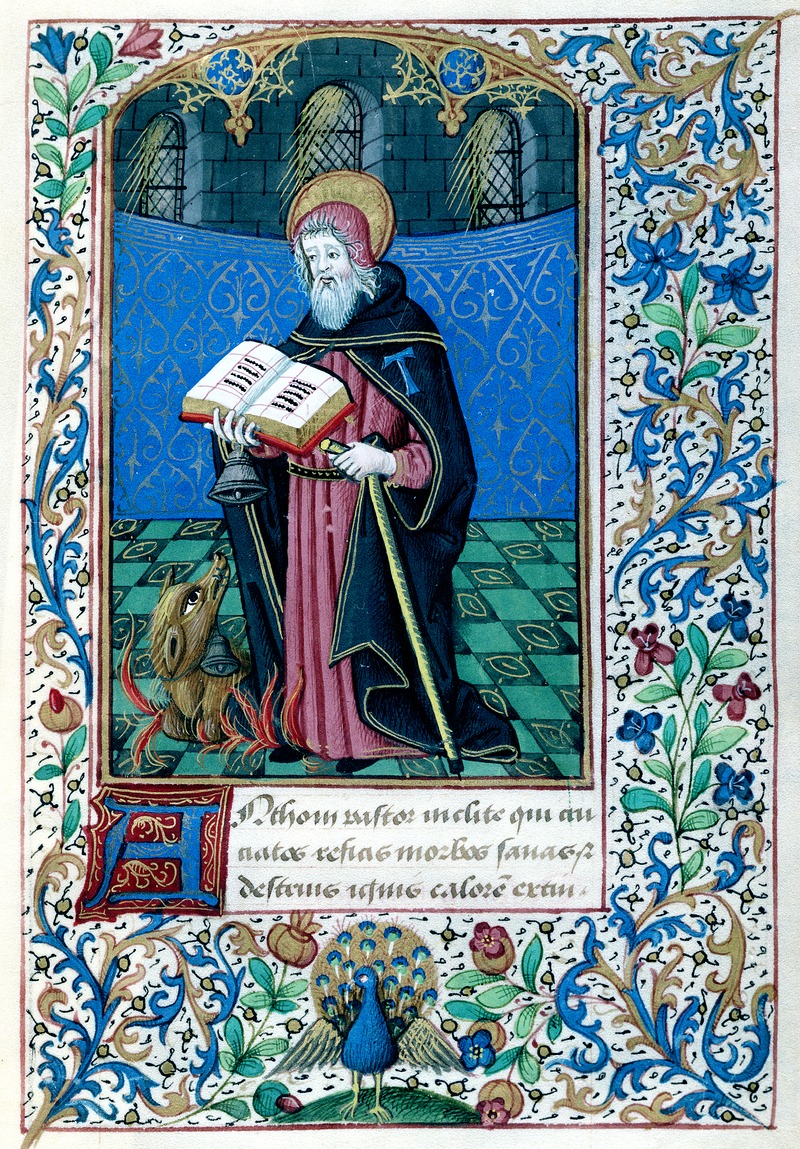 ANthoni pastor inclite qui cru
ciatos reficis morbos sanas et
destruis ignis calorē extin